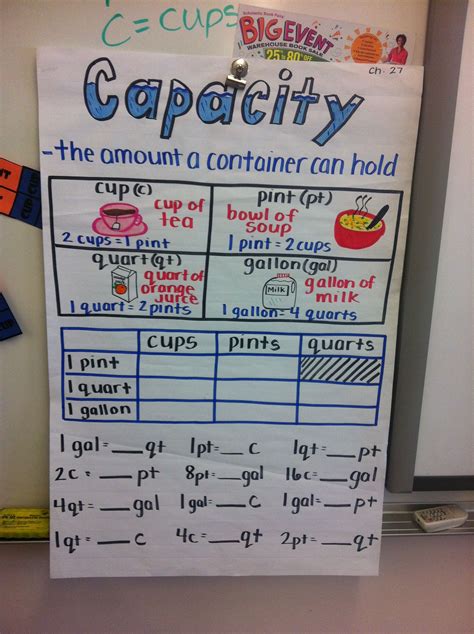 C = cups
Scholastic Book Fairs
BIG EVENT
WAREHOUSE BOOK SALE
25 to 80% OFF
Ch. 27
Capacity
-the amount a container can hold
cup (c)
cup of
tea
2 cups = 1 pint
pint (pt)
bowl of
soup
1 pint = 2 cups
quart (qt)
quart of
orange
juice
1 quart = 2 pints
gallon (gal)
Milk
gallon of
milk
1 gallon = 4 quarts
cups pints quarts
1 pint
1 quart
1 gallon
1 gal = __ qt 1pt = __ c 1qt = __ pt
2c = __ pt 8pt = __ gal 16c = __ gal
4qt = __ gal 1gal = __ c 1gal = __ pt
1qt = __ c 4c = __ qt 2pt = __ qt